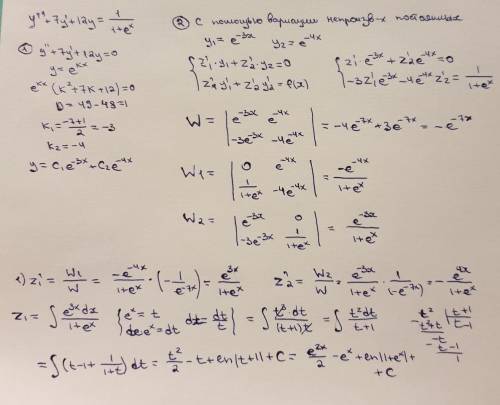 y'' + 7y' + 12y = 1/(1+eˣ)
① y'' + 7y' + 12y = 0
y = eᵏˣ
eᵏˣ(k² + 7k + 12) = 0
D = 49 - 48 = 1
k₁ = (-7+1)/2 = -3
k₂ = -4
y = C₁e⁻³ˣ + C₂e⁻⁴ˣ
② С помощью вариации непроизв-х постоянных
y₁ = e⁻³ˣ y₂ = e⁻⁴ˣ
{ z₁'·y₁ + z₂'·y₂ = 0 { z₁'·e⁻³ˣ + z₂'e⁻⁴ˣ = 0
{ z₁'·y₁' + z₂'y₂' = f(x) { -3z₁'e⁻³ˣ - 4e⁻⁴ˣz₂' = 1/(1+eˣ)
W = | e⁻³ˣ e⁻⁴ˣ |
| -3e⁻³ˣ -4e⁻⁴ˣ | = -4e⁻⁷ˣ + 3e⁻⁷ˣ = -e⁻⁷ˣ
W₁ = | 0 e⁻⁴ˣ |
| 1/(1+eˣ) -4e⁻⁴ˣ | = -e⁻⁴ˣ/(1+eˣ)
W₂ = | e⁻³ˣ 0 |
| -3e⁻³ˣ 1/(1+eˣ) | = e⁻³ˣ/(1+eˣ)
1) z₁' = W₁/W = -e⁻⁴ˣ/(1+eˣ) · (-1/e⁻⁷ˣ) = e³ˣ/(1+eˣ) z₂' = W₂/W = e⁻³ˣ/(1+eˣ) · 1/(-e⁻⁷ˣ) = -e⁴ˣ/(1+eˣ)
z₁ = ∫ e³ˣdx/(1+eˣ) { eˣ = t dx = dt/t } = ∫ t³·dt/((t+1)t) = ∫ t²dt/(t+1) t² | t+1
eˣ = dt t²+t | t-1
-t
-t-1
1
= ∫ (t - 1 + 1/(1+t)) dt = t²/2 - t + ln|t+1| + C = e²ˣ/2 - eˣ + ln|1+eˣ| +
+ C